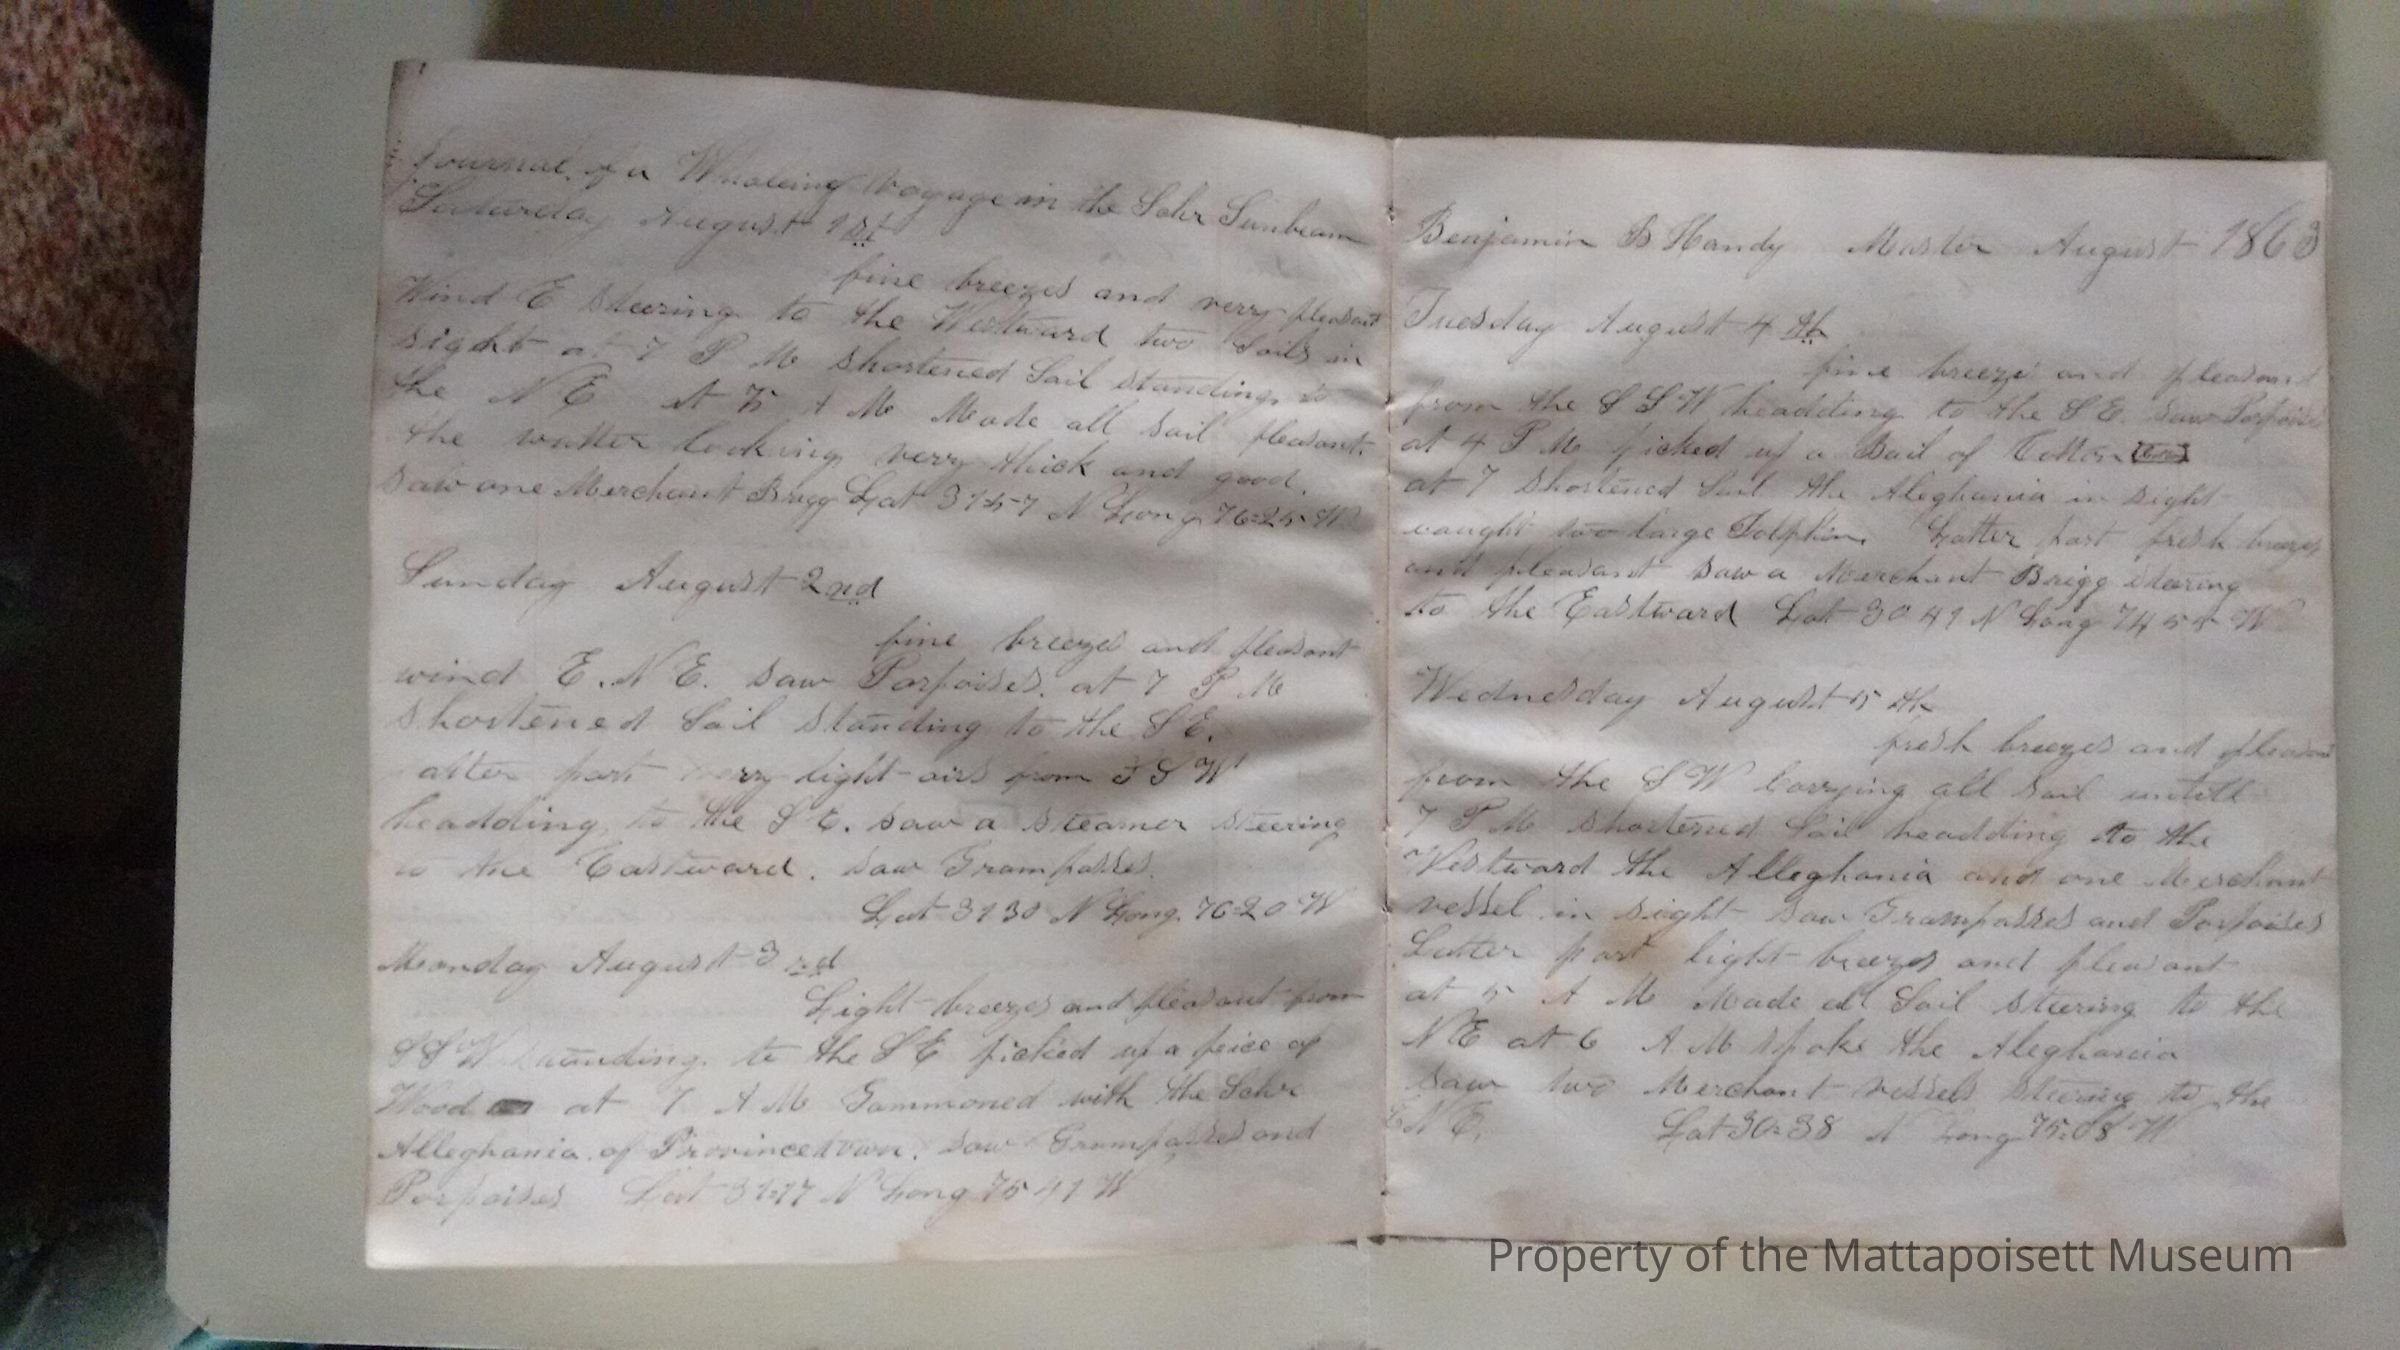 Journal of a Whaleing Voyage in the Schr Sunbeam
Saturday August 1st
fine breezes and verry pleasant
Wind E steering to the Westward two Sails in
sight at 7 P M shortened Sail standing to
the N E at 5 A M Made all sail pleasant.
the watter looking verry thick and good.
saw one Merchant Brigg Lat 31=57 N Long 76=25 W
Sunday August 2nd
fine breezes and pleasant
wind E. N E. saw Porpoises. at 7 P M
shortened Sail standing to the S E.
latter part verry light airs from S S W
headding to the S E. saw a steamer steering
to the Eastward. saw Grampasses.
Lat 31 30 N Long. 76=20 W
Monday August 3rd
Light breezes and pleasant from
S S W standing to the S E picked up a peice of
Wood at 7 A M Gammoned with the Schr
Alleghania of Provincetown. saw Grampasses and
Porpoises Lat 31=17 N Long 75 41 W
Benjamin B Handy Master August 1863
Tuesday August 4th
fine breeze and pleasant
from the S S W headding to the S E. saw Porpoises
at 4 P M picked up a Bail of Cotton
at 7 shortened Sail the Aleghania in sight
caught two large Dolphin. Latter part fresh breezes
and pleasant saw a Merchant Brigg staring
to the Eastward Lat 30 41 N Long 74 55 W
Wednesday August 5th
fresh breezes and pleasant
from the S W carrying all sail untill
7 P M shortened Sail headding to the
Westward the Alleghania and one Merchant
vessel in sight saw Grampasses and Porpoises
Latter part light breezes and pleasant
at 5 A M Made all Sail steering to the
N E at 6 A M spoke the Aleghania
saw two Merchant vessels steering to the
E N E. Lat 30=38 N Long 75=08 W
Property of the Mattapoisett Museum